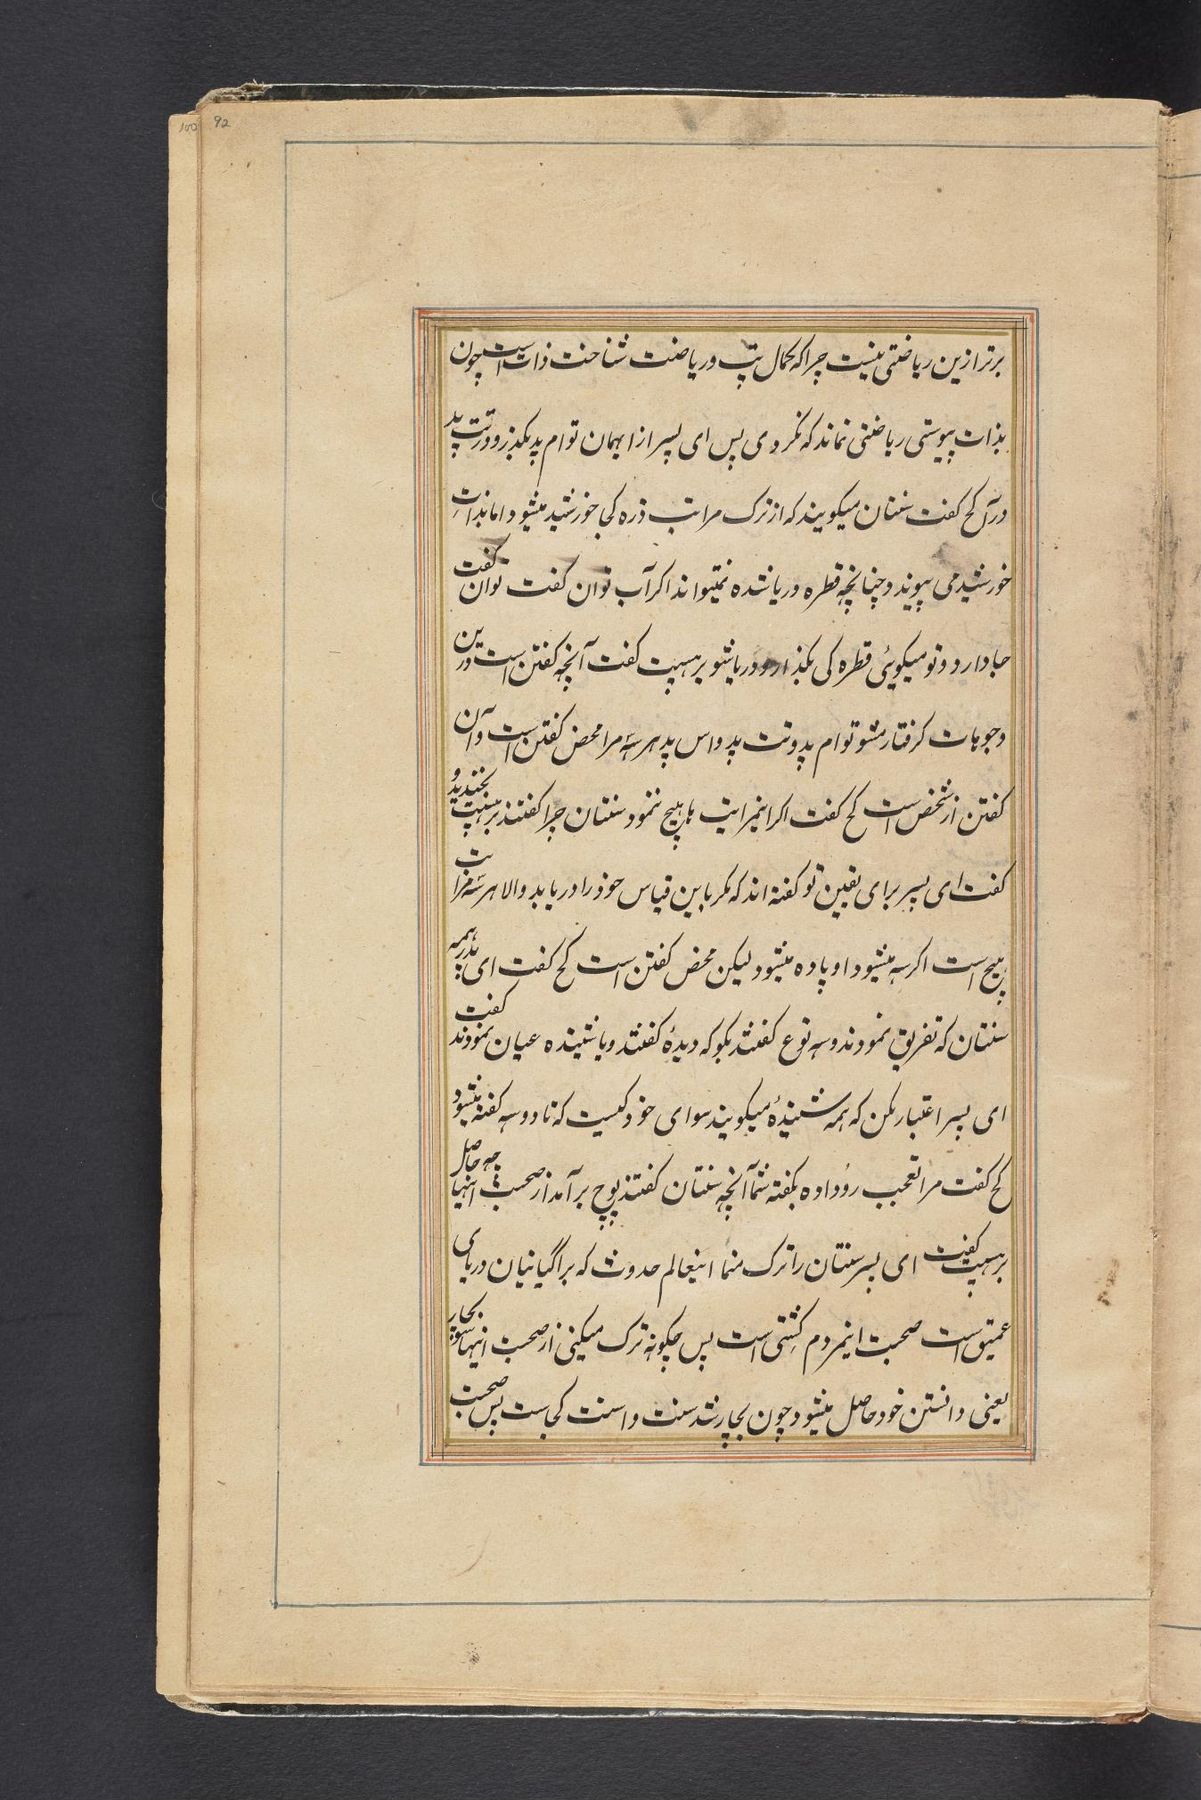 100 92
برتر ازین ریاضتی نیست چراکه کمال تپ و ریاضت شناخت ذات است چون
بذات پیوستی ریاضتی نماند که نکردی پس ای پسر از ابهمان توام پد بگذر و در تت پد
درآ کچ گفت سنتان میگویند که از ترک مراتب ذره کجا خورشید میشود اما بذات
خورشید می پیوندد چنانچه قطره دریا نشده نمیتواند اگر آب توان گفت توان گفت
جا دارد و تو میگویی قطره کی بگذار و دریا شو برهسپت گفت آنچه گفتن است درین
وجوهات گرفتار مشو توام پد و تت پد و اس پد هر سه مرا محض گفتن است و آن
گفتن از شخص است کچ گفت اگر اینمراتب هیچ نمود سنتان چرا گفتند برهسپت بخندید و
گفت ای پسر برای یقین تو گفته اند که مگر باین قیاس خود را دریابد والا هر سه مراتب
هیچ است اگر سه میشود او پاده میشود لیکن محض گفتن است کچ گفت ای پدر همه
سنتان که تفریق نمودند و سه نوع گفتند بگو که دیدهٔ گفتند و یا شنیده عیان نمودند گفت
ای پسر اعتبار مکن که همه شنیدهٔ میگویند سوای خود کیست که تا دو و سه گفته میشود
کچ گفت مرا تعجب رو داده بگفته شما آنچه سنتان گفتند پوچ برآمد از صحبت اینها چه حاصل
برهسپت گفت ای پسر سنتان را ترک منما اینعالم حدوث که بر اگیانیان دریای
عمیق است صحبت اینمردم کشتی است پس چگونه ترک میکنی از صحبت اینها سو بچار
یعنی دانستن خود حاصل میشود چون بچار شد ست و است کجاست پس صحبت